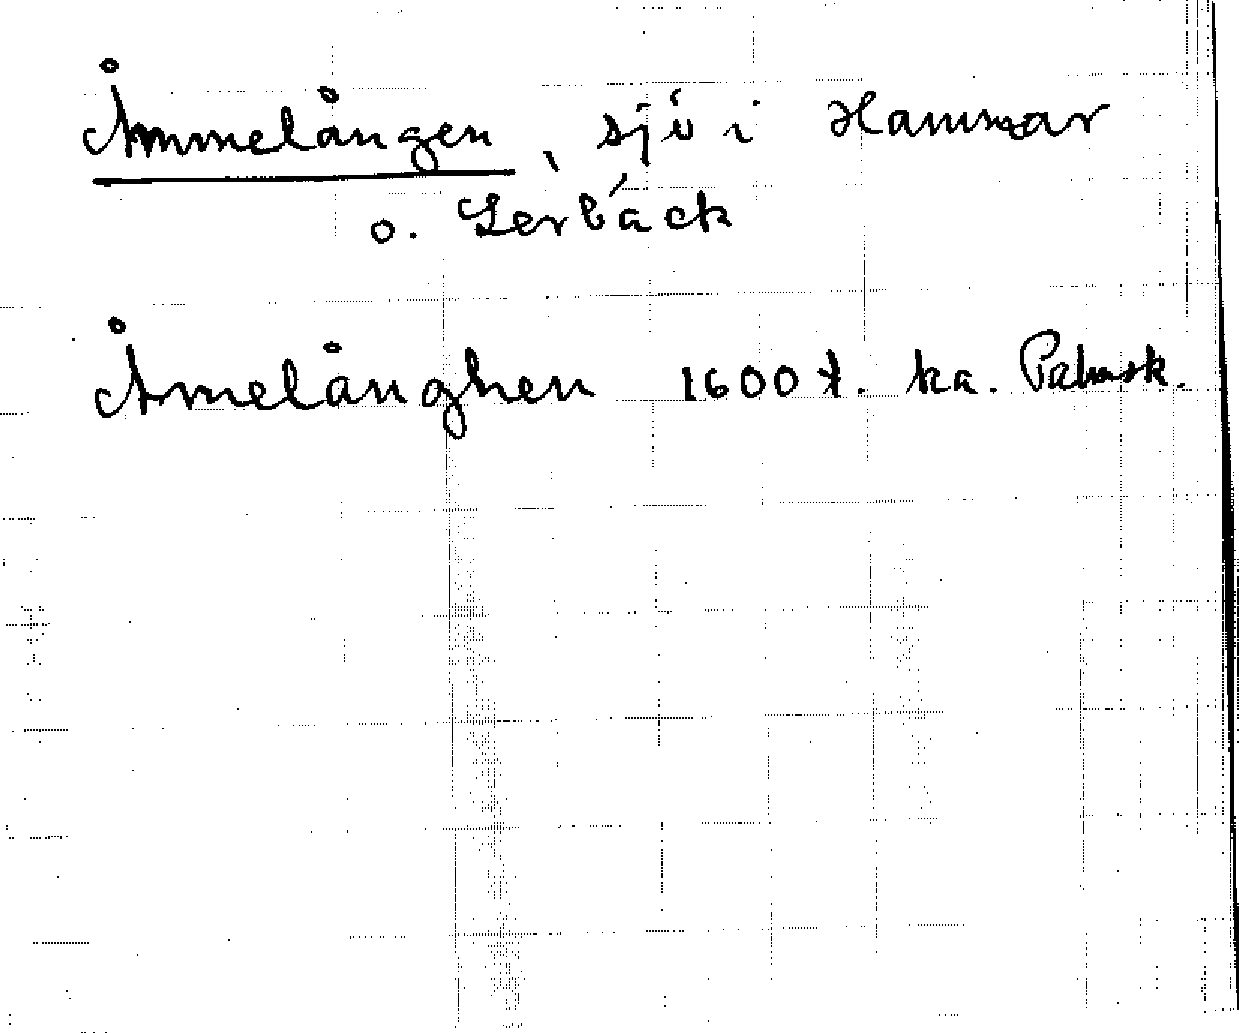 Åmmelången, sjö i Hammar
o. Lerbäck
Åmelånghen 1600 t. ka. Palmsk.